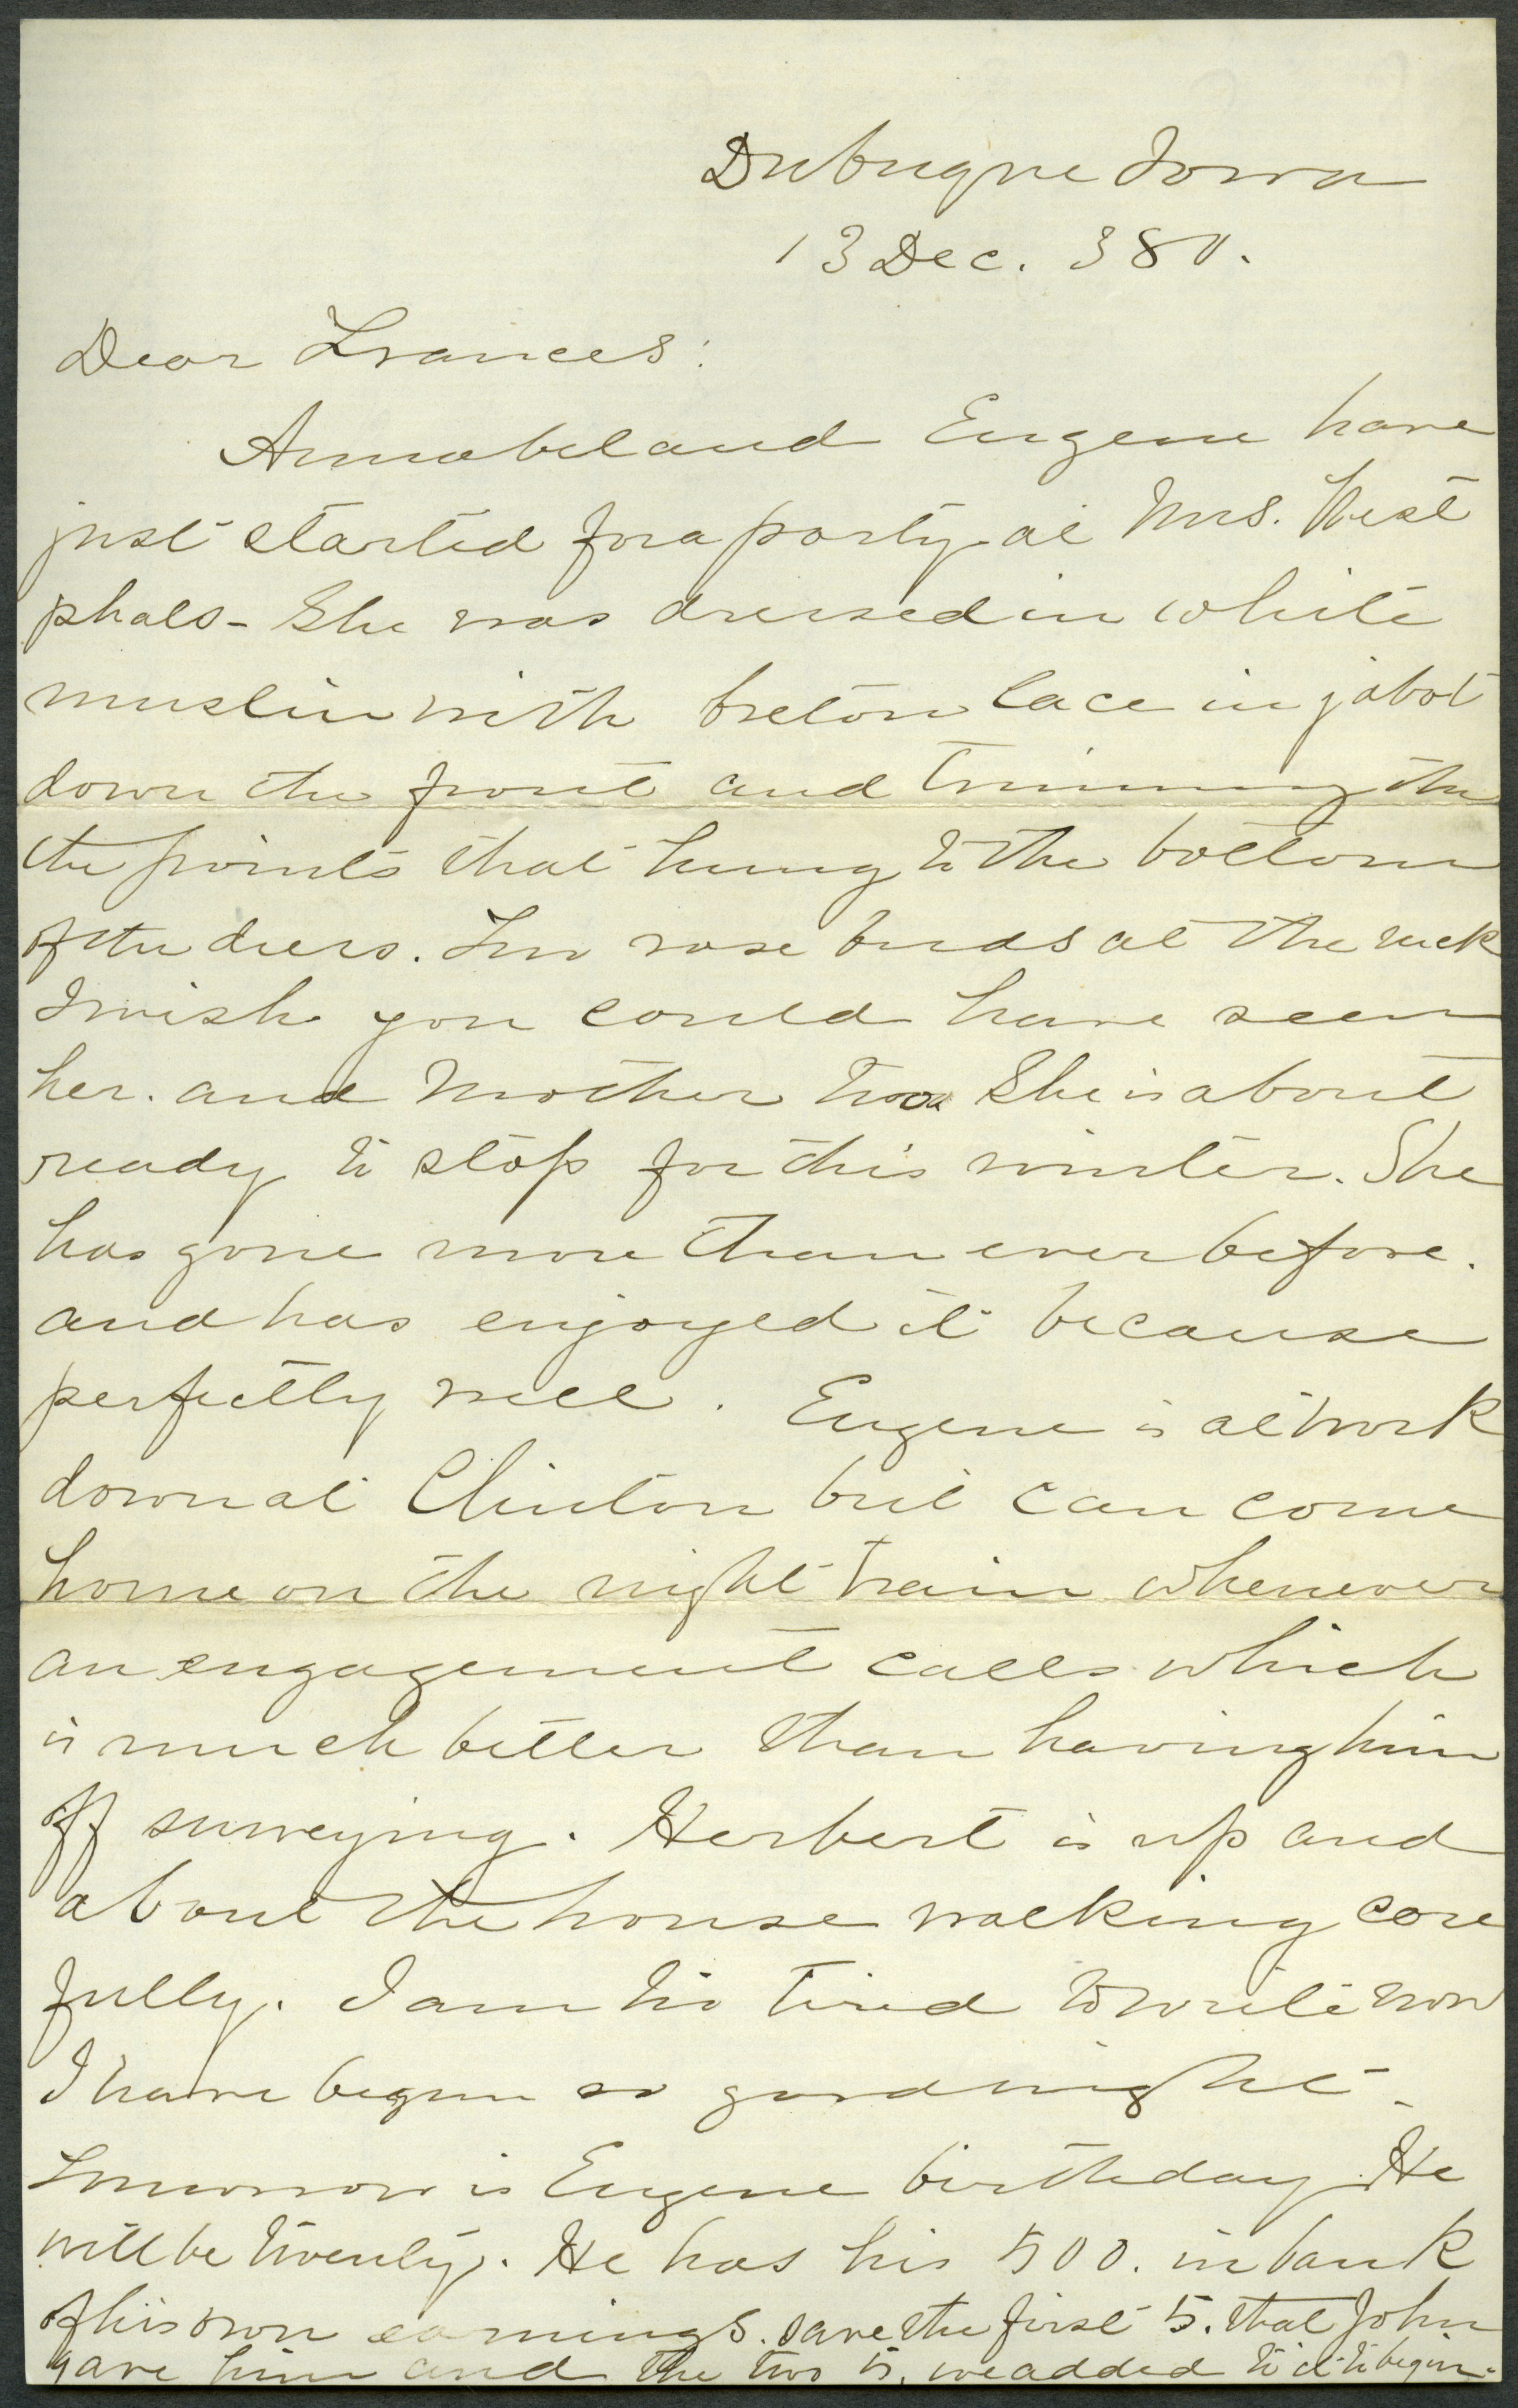 Dubuque Iowa
13 Dec. 380.
Dear Frances:
Annabel and Eugene have
just started for a party at Mrs. West
phals - She was dressed in white
muslin with breton lace in jabot
down the front and trimming the
the points that hung to the bottom
of the dress. Tea rose buds at the neck
I wish you could have seen
her. and Mother too She is about
ready to stop for this winter. She
has gone more than ever before.
and has enjoyed it because
perfectly well. Eugene is at work
down at Clinton but can come
home on the night train whenever
an engagement calls which
is much better than having him
off surveying. Herbert is up and
about the house walking care
fully. I am too tired to write now
I have begun so goodnight -
Tomorrow is Eugene birthday. He
will be twenty. He has his 500. in bank
of his own earnings. save the first 5. that John
gave him and the two 5. we added to it to begin.